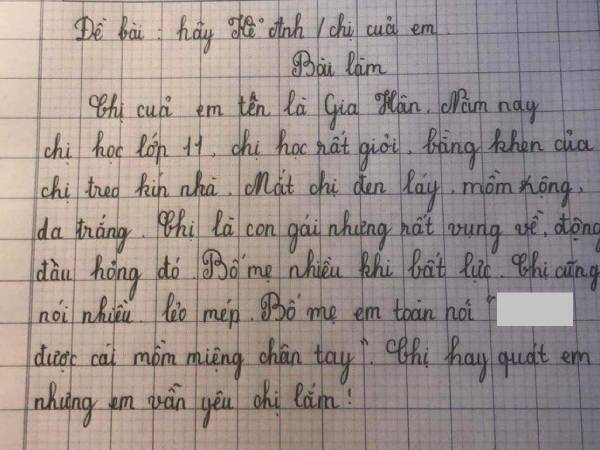 Đề bài : hãy kể Anh / chị cuả em.
Bài làm
Chị cuả em tên là Gia Hân. Năm nay
chị học lớp 11, chị học rất giỏi, bằng khen của
chị treo kín nhà. Mắt chị đen láy, mồm rộng,
da trắng. Chị là con gái nhưng rất vụng về, động
đầu hỏng đó. Bố mẹ nhiều khi bất lực. Chị cũng
nói nhiều, lẻo mép. Bố mẹ em toàn nói "
được cái mồm miệng chân tay". Chị hay quát em
nhưng em vẫn yêu chị lắm!